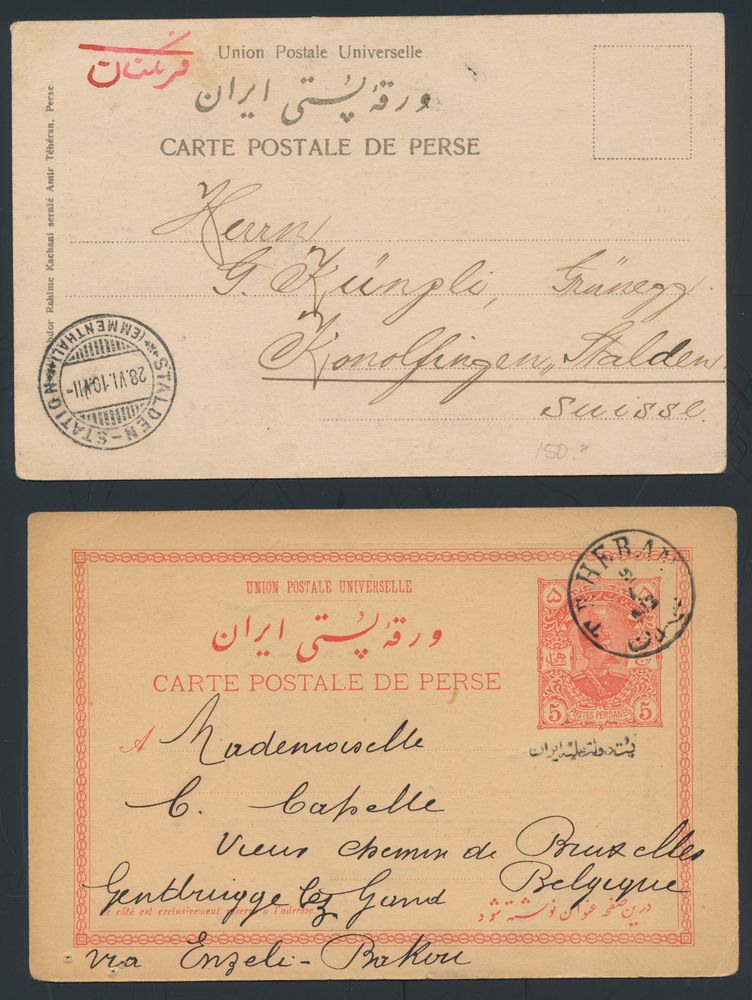 فرنگستان
Union Postale Universelle
ورقهٔ پُستی ایران
CARTE POSTALE DE PERSE
Rahime Kachani seraié Amir Téhéran, Perse.
Herrn
G. Künzli, Grünegg
Konolfingen, Stalden
Suisse.
STALDEN-STATION
(EMMENTHAL)
28.VI.10.VII-
150.-
UNION POSTALE UNIVERSELLE
ورقهٔ پُستی ایران
CARTE POSTALE DE PERSE
TEHERAN
۵ ۵
5 POSTES PERSANES 5
پست دولت علیه ایران
A Mademoiselle
C. Capelle
Vieux chemin de Bruxelles
Gentbrugge lez Gand Belgique
Ce côté est exclusivement réservé à l'adresse
درین صفحه عنوان نوشته شود
via Enzeli - Bakou